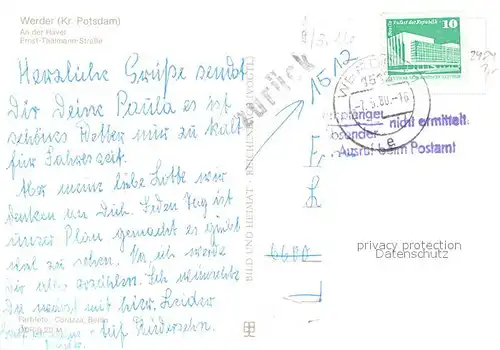 Werder (Kr. Potsdam)
An der Havel
Ernst-Thälmann-Straße
Herzliche Grüße sendet
Dir Deine Paula es ist
schönes Wetter nur zu kalt
für Jahreszeit.
Aber meine liebe Lotte wir
denken an Dich. Jeden Tag ist
unser Plan gemacht es giebt
viel zu sehen. Na, ich werde
Dir alles erzählen. Ich wünschte
Du wärst mit hier. Leider
auf Wiedersehn.
Farbfoto: Berlin
BILD UND HEIMAT REICHENBACH
zurück
1512
10
WERDER
1512
80
Empfänger nicht ermittelt
Absender
Ausruf beim Postamt
6600
privacy protection
Datenschutz